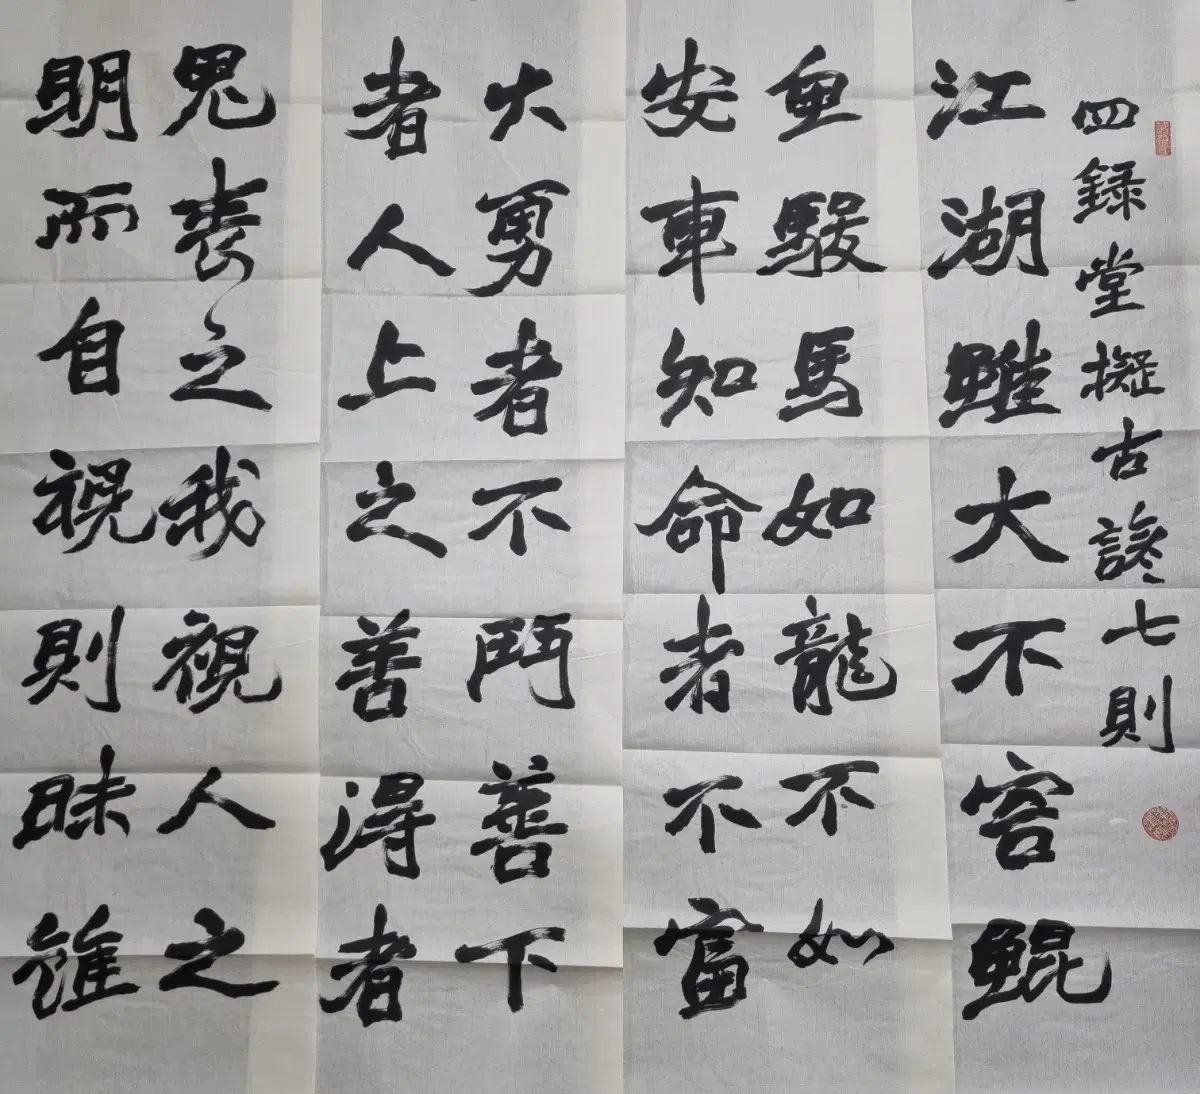 四録堂擬古諺七則
江湖雖大不容鯤
魚駿馬如龍不如
安車知命者不富
大勇者不鬥善下
者人上之善得者
鬼喪之我視人之
明而自視則昧雖